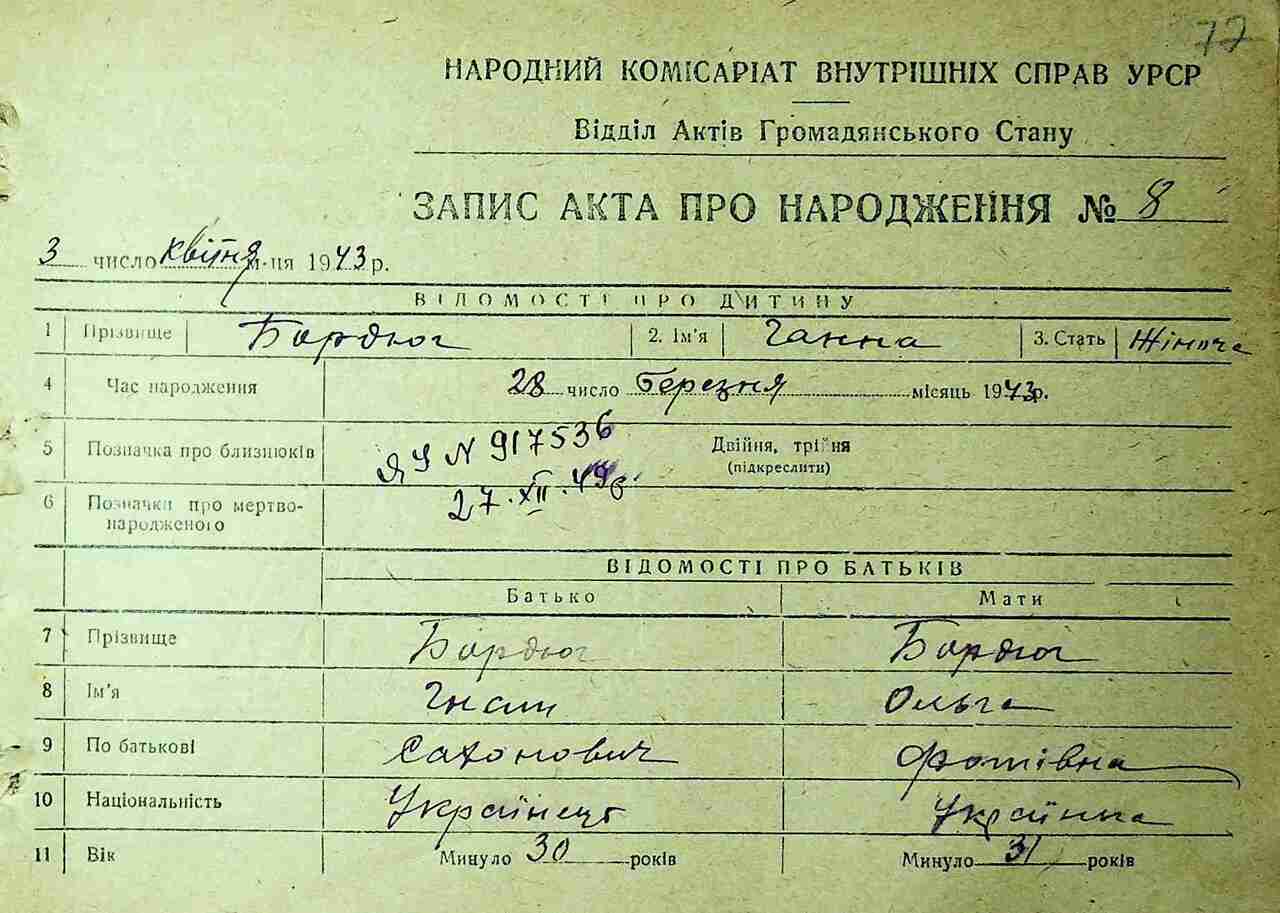 77
НАРОДНИЙ КОМІСАРІАТ ВНУТРІШНІХ СПРАВ УРСР
Відділ Актів Громадянського Стану
ЗАПИС АКТА ПРО НАРОДЖЕННЯ № 8
3 число квітня м-ця 1943 р.
ВІДОМОСТІ ПРО ДИТИНУ
1 Прізвище Бордюг 2. Ім'я Ганна 3. Стать Жіноча
4 Час народження 28 число березня місяць 1943 р.
5 Позначка про близнюків ЯУ N 917536 Двійня, трійня
(підкреслити)
27.XII.49
6 Позначки про мертво-
народженого
ВІДОМОСТІ ПРО БАТЬКІВ
Батько Мати
7 Прізвище Бордюг Бордюг
8 Ім'я Гнат Ольга
9 По батькові Сахонович Фотівна
10 Національність Українець Українка
11 Вік Минуло 30 років Минуло 31 років